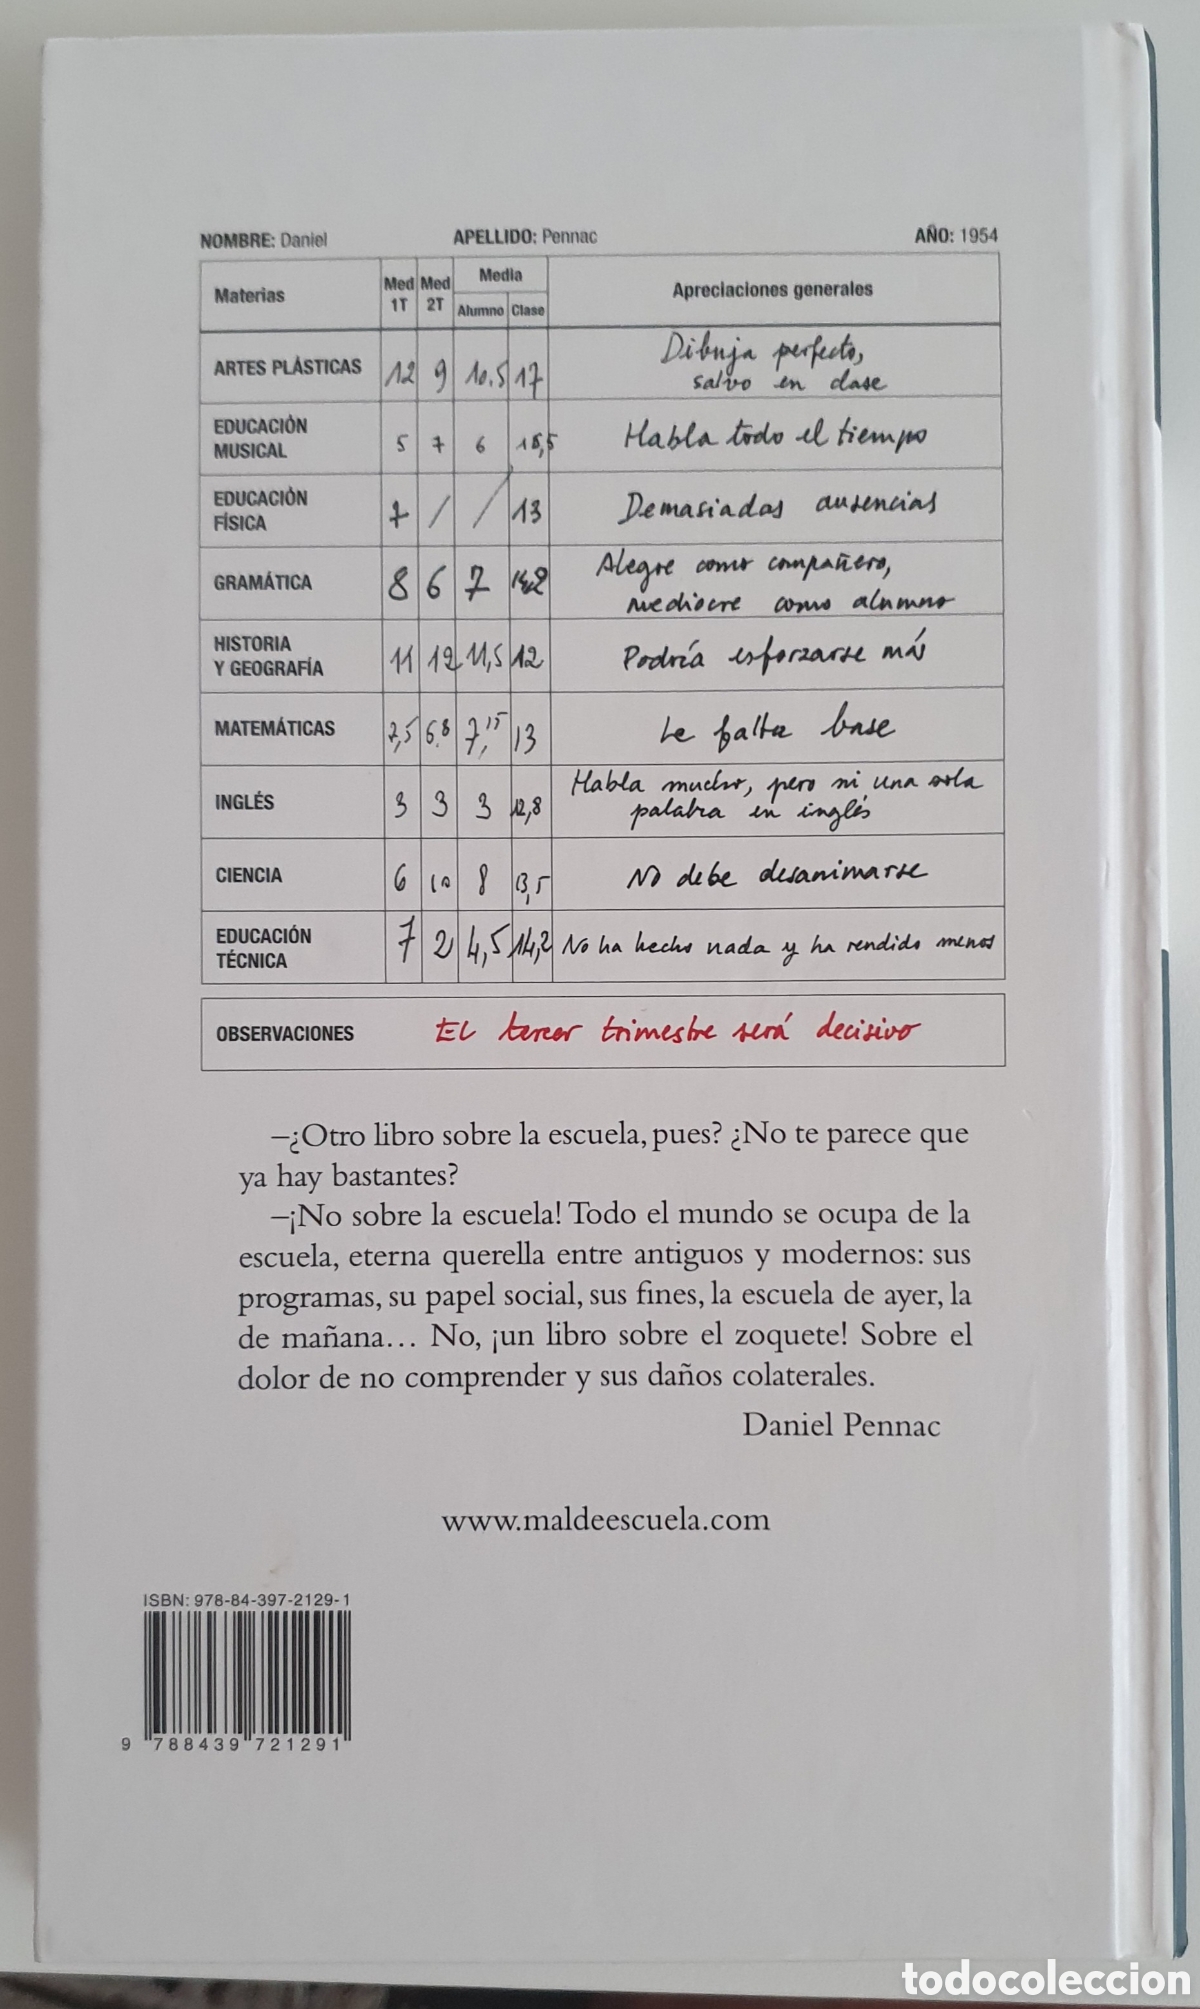 NOMBRE: Daniel APELLIDO: Pennac AÑO: 1954
Materias Med 1T Med 2T Media Alumno Clase Apreciaciones generales
ARTES PLÁSTICAS 12 9 10,5 17 Dibuja perfecto,
salvo en clase
EDUCACIÓN
MUSICAL 5 7 6 Habla todo el tiempo
EDUCACIÓN
FÍSICA 7 / / 13 Demasiadas ausencias
GRAMÁTICA 8 6 7 Alegre como compañero,
mediocre como alumno
HISTORIA
Y GEOGRAFÍA 11 12 11,5 12 Podría esforzarse más
MATEMÁTICAS 7,5 6,8 7,15 13 Le falta base
INGLÉS 3 3 3 12,8 Habla mucho, pero ni una sola
palabra en inglés
CIENCIA 6 10 8 13,5 No debe desanimarse
EDUCACIÓN
TÉCNICA 7 2 4,5 14,2 No ha hecho nada y ha rendido menos
OBSERVACIONES El tercer trimestre será decisivo
–¿Otro libro sobre la escuela, pues? ¿No te parece que
ya hay bastantes?
–¡No sobre la escuela! Todo el mundo se ocupa de la
escuela, eterna querella entre antiguos y modernos: sus
programas, su papel social, sus fines, la escuela de ayer, la
de mañana… No, ¡un libro sobre el zoquete! Sobre el
dolor de no comprender y sus daños colaterales.
Daniel Pennac
www.maldeescuela.com
ISBN: 978-84-397-2129-1
9 788439 721291
todocoleccion